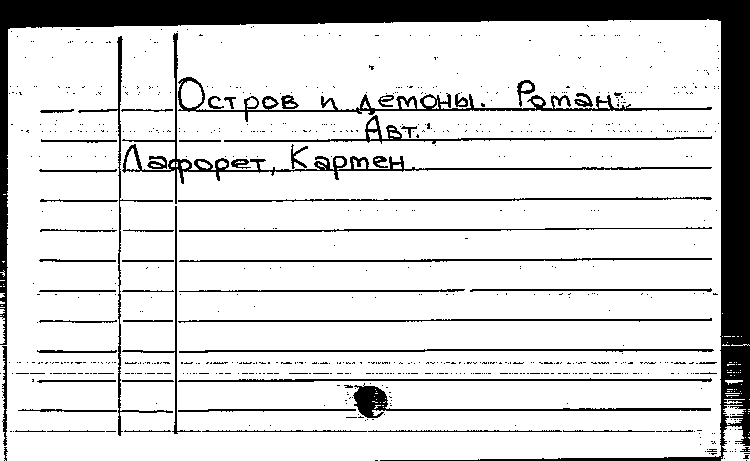 Остров и демоны. Роман.
Авт.:
Лафорет, Кармен